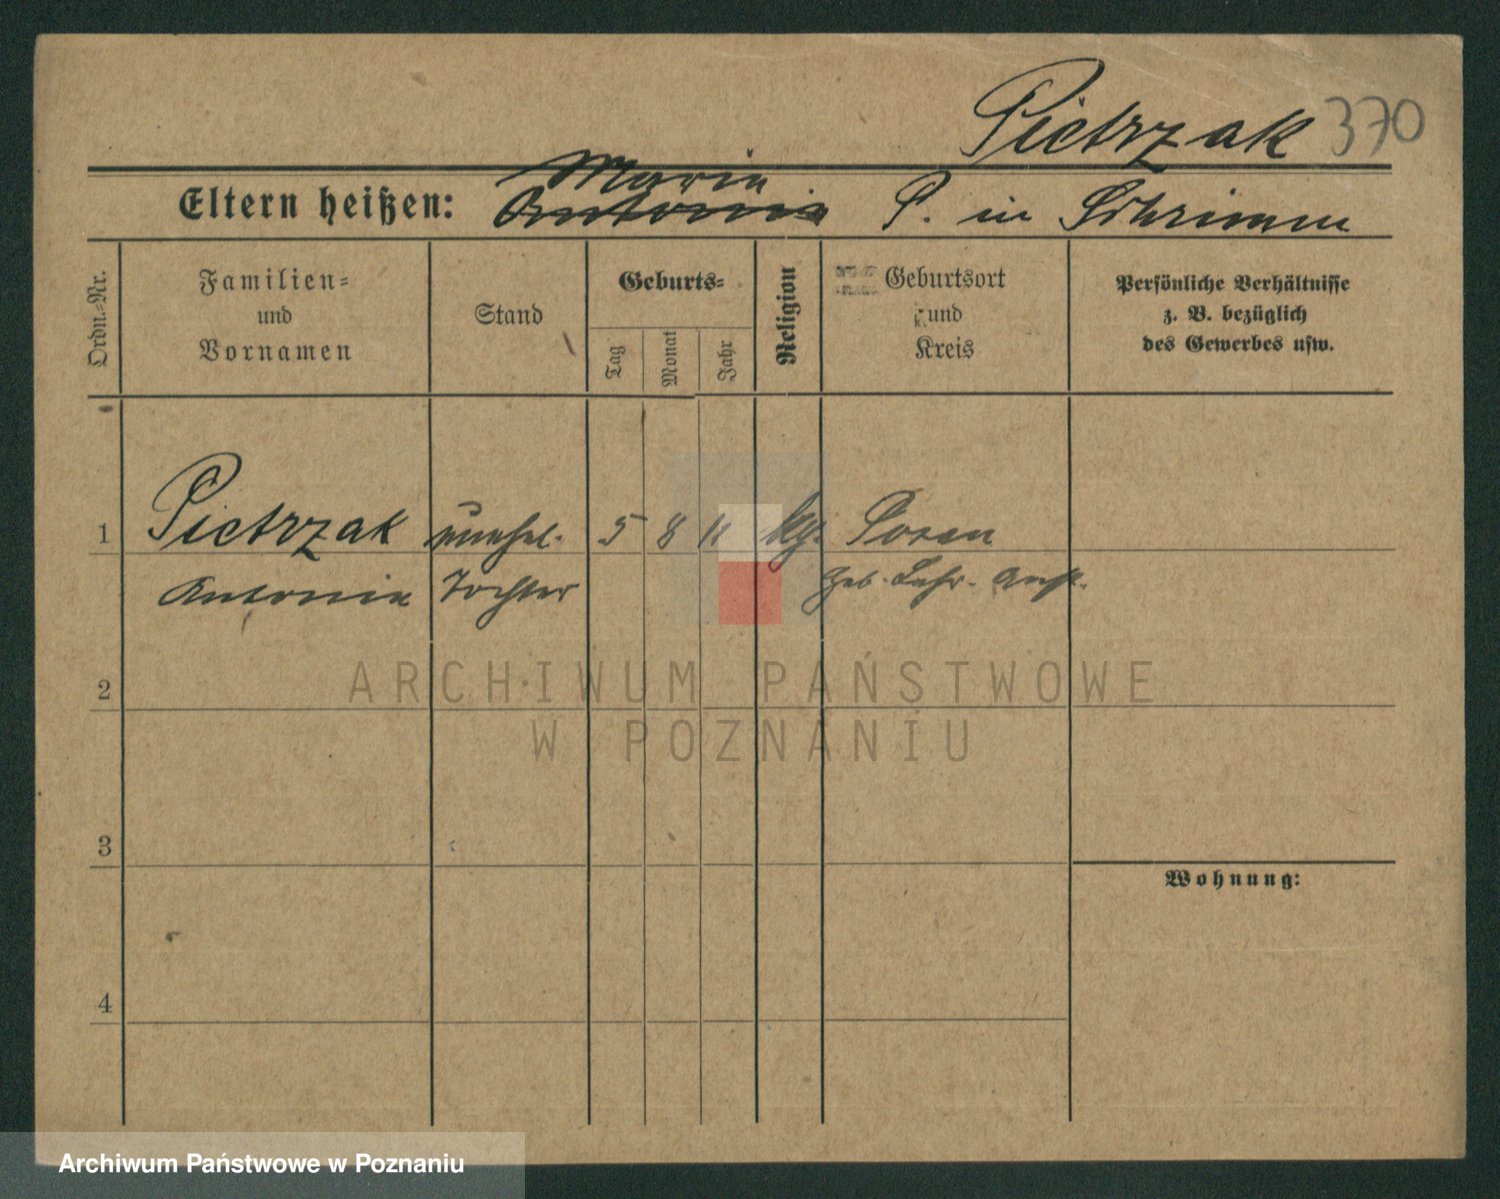 Pietrzak 370
Maria
Eltern heißen: Antonia P. in Schrimm
Ordn.-Nr.
Familien-
und
Vornamen
Stand
Geburts-
Tag
Monat
Jahr
Religion
Geburtsort
und
Kreis
Persönliche Verhältnisse
z. B. bezüglich
des Gewerbes usw.
1 Pietrzak unehel. 5 8 11 kg. Posen
Antonia Tochter Heb. Lehr. Anst.
2
3
Wohnung:
4
ARCHIWUM PAŃSTWOWE
W POZNANIU
Archiwum Państwowe w Poznaniu